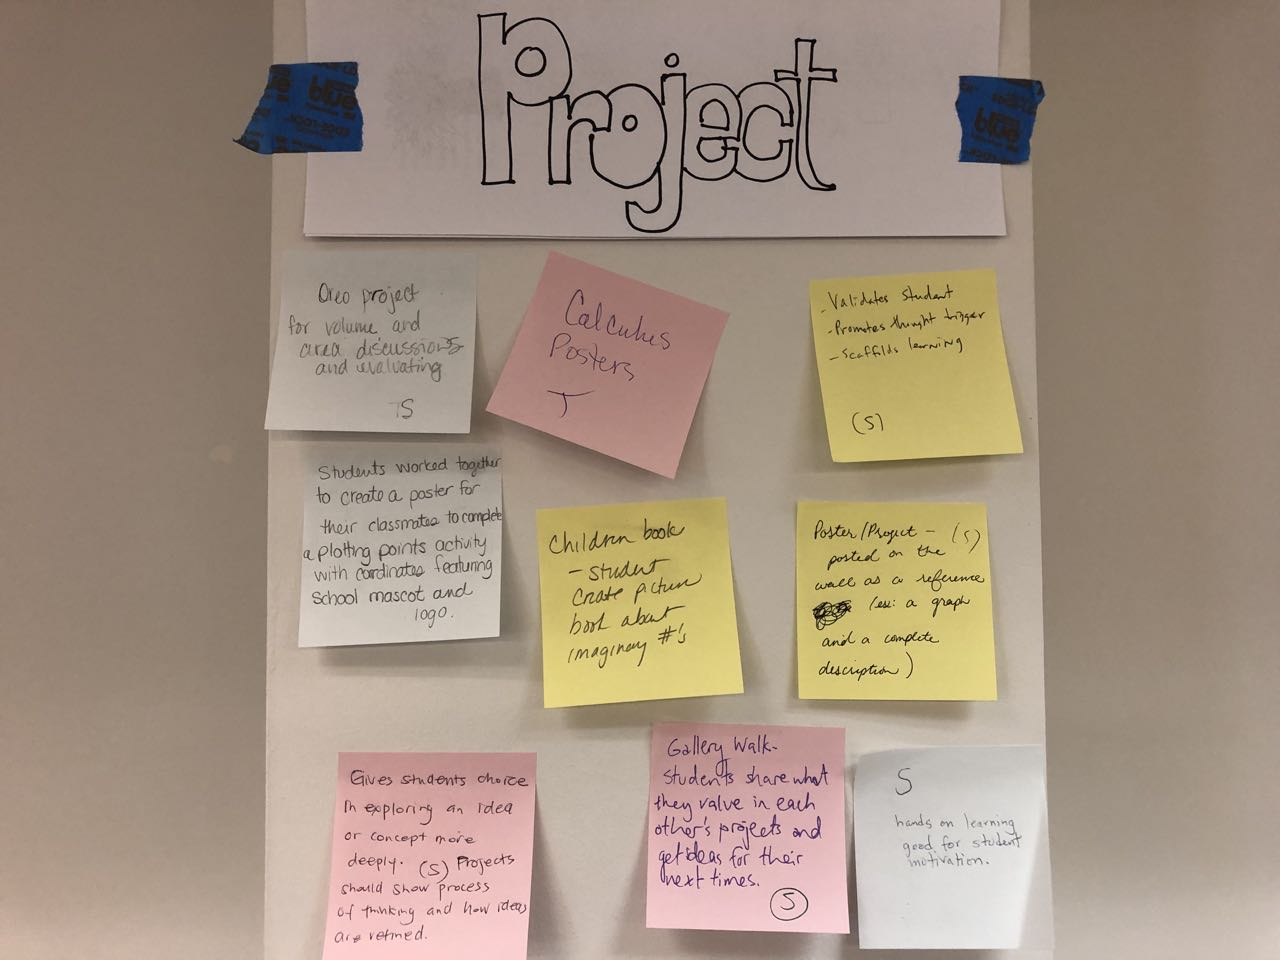 Project
blue
blue
Oreo project
for volume and
area discussions
and evaluating
TS
Calculus
Posters
T
- Validates student
- Promotes thought trigger
- Scaffolds learning
(S)
Students worked together
to create a poster for
their classmates to complete
a plotting points activity
with cordinates featuring
School mascot and
logo.
Children book
- student
create picture
book about
imaginary #'s
Poster/Project - (S)
posted on the
wall as a reference
(ex: a graph
and a complete
description)
Gives students choice
in exploring an idea
or concept more
deeply. (S) Projects
should show process
of thinking and how ideas
are refined.
Gallery Walk-
students share what
they value in each
other's projects and
get ideas for their
next times.
S
S
hands on learning
good for student
motivation.